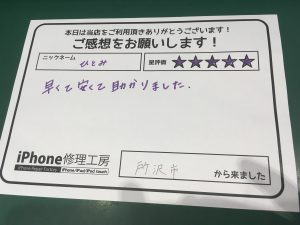 本日は当店をご利用頂きありがとうございます！
ご感想をお願いします！
ニックネーム
ひとみ
星評価 ★★★★★
早くて安くて助かりました.
iPhone修理工房
iPhone Repair Factory iPhone/iPad/iPod touch
所沢市 から来ました